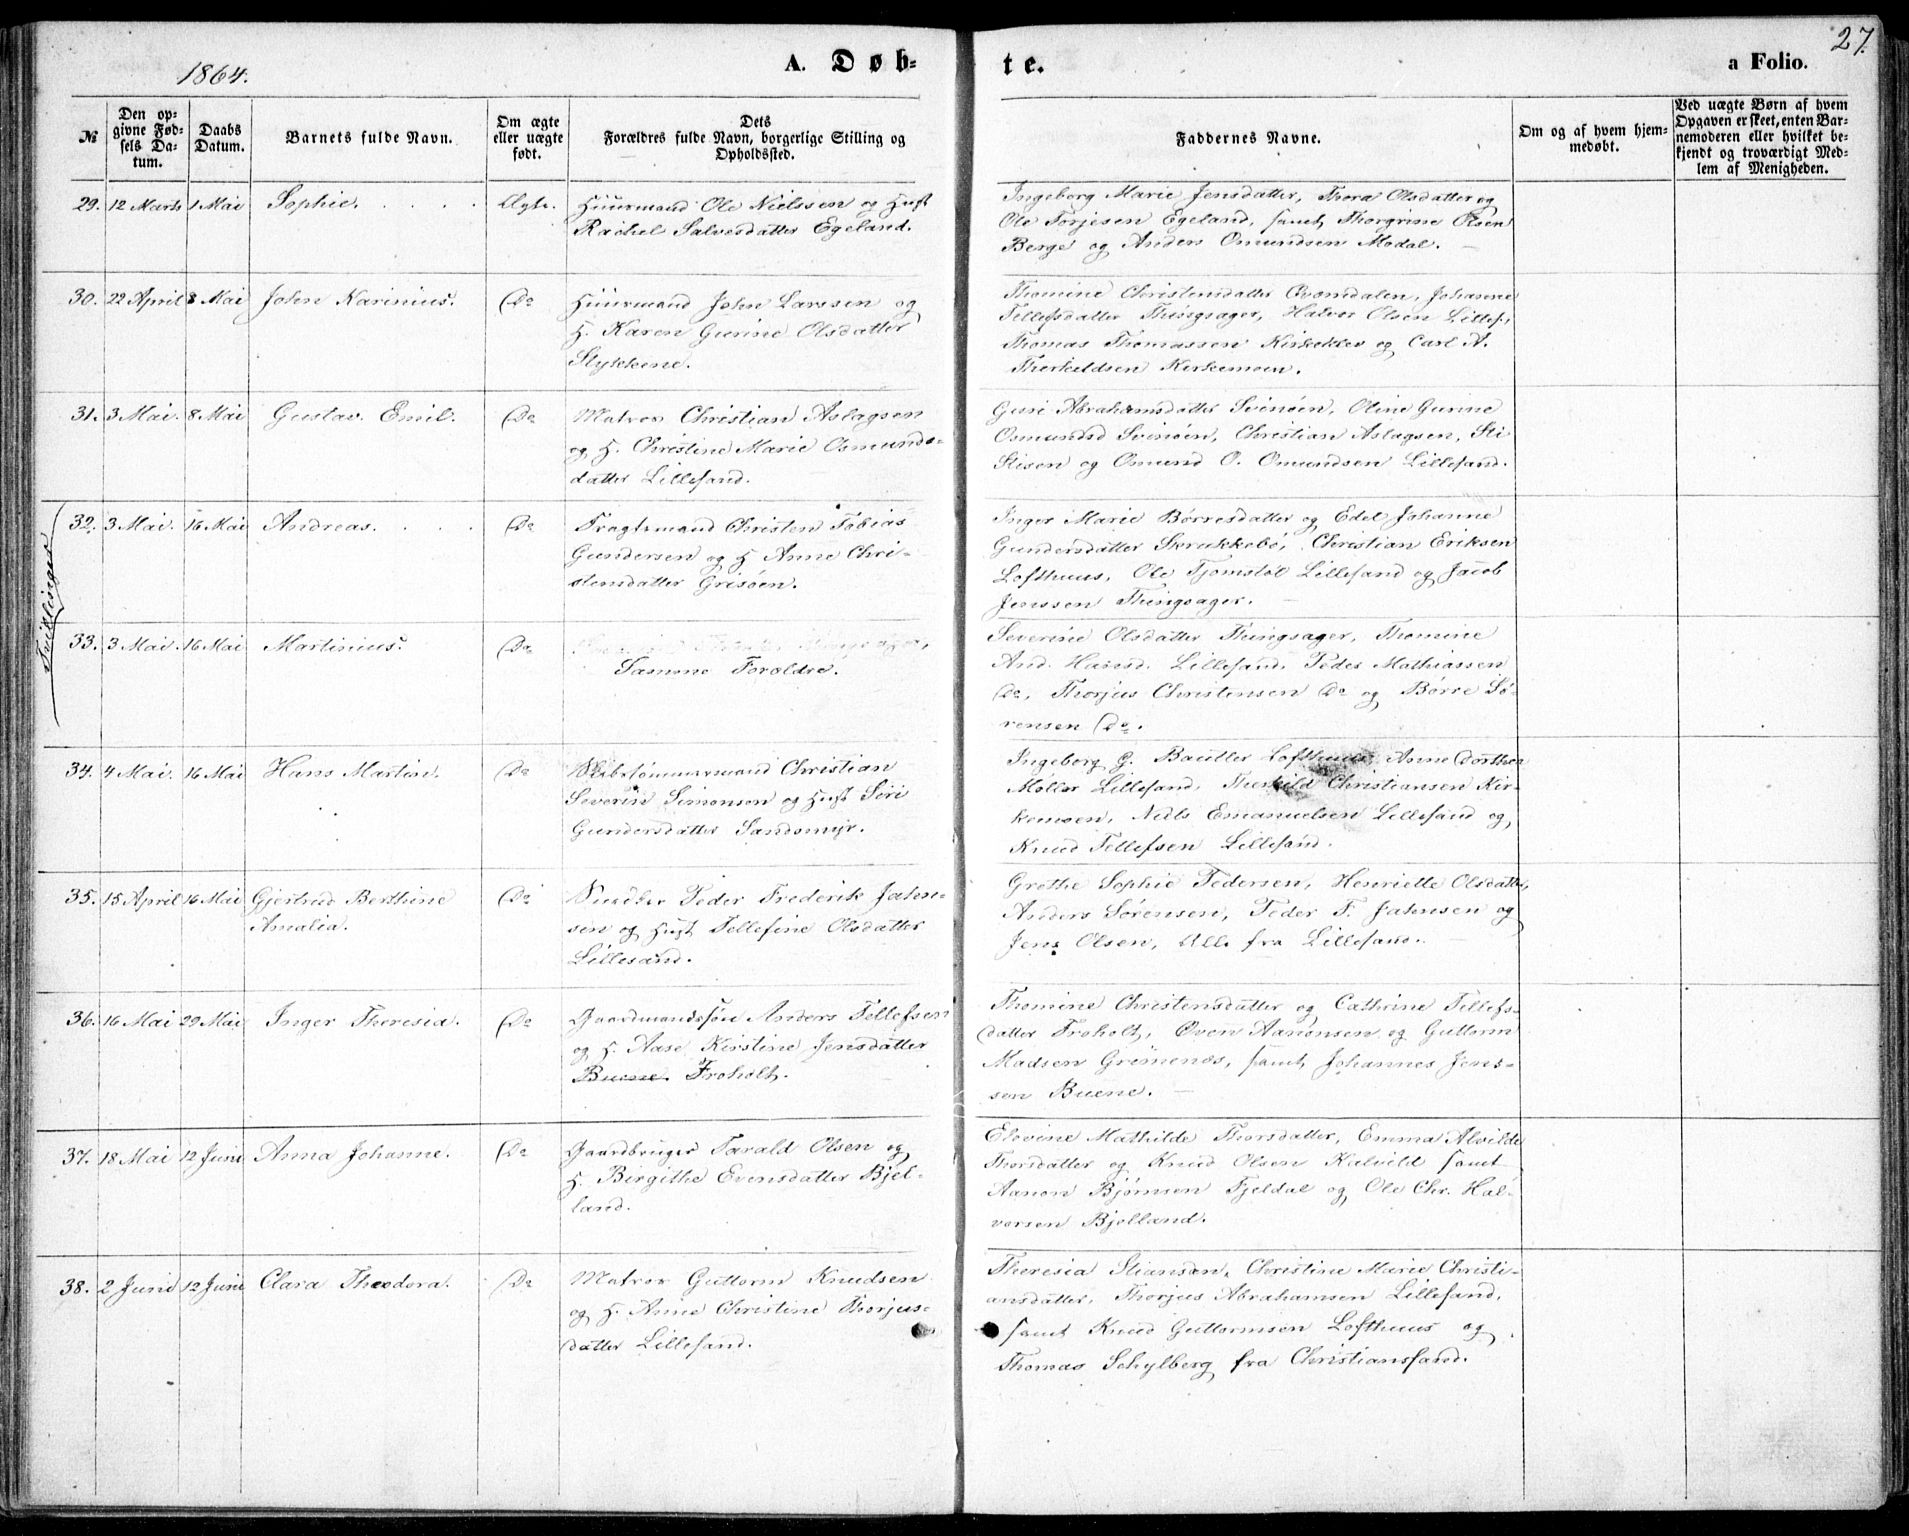 1864.
A. Døb-
te.
a Folio.
27.
№
Den op-
givne Fød-
sels Da-
tum.
Daabs
Datum.
Barnets fulde Navn.
Om ægte
eller uægte
født.
Dets
Forældres fulde Navn, borgerlige Stilling og
Opholdssted.
Faddernes Navne.
Om og af hvem hjem-
medøbt.
Ved uægte Børn af hvem
Opgaven er skeet, enten Bar-
nemoderen eller hvilket be-
kjendt og troværdigt Med-
lem af Menigheden.
29. 12 Marts 1 Mai Sophie. Ægte.
Huurmand Ole Nielssen og Hust
Rachel Salvesdatter Egeland.
Ingeborg Marie Jensdatter, Thora Olsdatter og
Ole Torjesen Egeland, samt Thorgrine Olsen
Berge og Anders Omundsen Modal. —
30. 22 April 8 Mai John Karinius. Do
Huurmand John Larssen og
H. Karen Gurine Olsdatter
Stykkene.
Thomine Christensdatter Qvomdalen, Johanne
Tellefsdatter Thingsager, Halvor Olsen Lillef.,
Thomas Thomassen Kirkekler og Carl A.
Therkildsen Kirkemoen.
31. 3 Mai. 8 Mai Gustav Emil. Do
Matros Christian Aslagsen
og H. Christine Marie Osmunds-
datter Lillesand.
Guri Abrahamsdatter Svinøen, Oline Gurine
Osmundsd Svinøen, Christian Aslagsen, Sti
Stisen og Omund O. Omundsen Lillesand.
Tvillinger
32. 3 Mai. 16 Mai Andreas. Do
Fragtemand Christen Tobias
Gundersen og H Anne Chri-
stensdatter Grisøen.
Inger Marie Børresdatter og Edel Johanne
Gundersdatter Skrukkebø, Christian Eriksen
Lofthuus, Ole Tjomstøl Lillesand og Jacob
Jenssen Thingsager. —
33. 3 Mai. 16 Mai Martinius. Do
Samme Forældre.
Severine Olsdatter Thingsager, Thomine
And. Hansd. Lillesand, Peder Mathiassen
Do, Thorjus Christensen Do og Børre Sø-
rensen Do.
34. 4 Mai. 16 Mai Hans Martin. Do
Skibstømmermand Christian
Severin Simonsen og Hust Siri
Gundersdatter Sandsmyr.
Ingeborg G. Bautler Lofthuus, Anne Dorthea
Møller Lillesand, Therkild Christiansen Kir-
kemoen, Niels Emanuelsen Lillesand og
Knud Tellefsen Lillesand.
35. 15 April 16 Mai Gjertrud Berthine
Amalia. Do
Snedker Peder Frederik Jahn-
sen og Hust Tellefine Olsdatter
Lillesand.
Grethe Sophie Pedersen, Henriette Olsdatter,
Anders Sørensen, Peder F. Jahnsen og
Jens Olsen, Alle fra Lillesand. —
36. 16 Mai 29 Mai Inger Theresia. Do
Gaardmandssøn Anders Tellefsen
og H. Aase Kirstine Jensdatter
Buene. Froholt.
Thomine Christensdatter og Cathrine Tellefs-
datter Froholt, Oven Aanonsen og Guttorm
Madsen Grimenæs, samt Johannes Jens-
sen Buene. —
37. 18 Mai 12 Juni Anna Johanne. Do
Gaardbruger Tarald Olsen og
H. Birgithe Evensdatter Bjel-
land.
Elovine Mathilde Thorsdatter, Emma Alvilde
Thorsdatter og Knud Olsen Kalvild samt
Aanon Bjørnsen Fjeldal og Ole Chr. Hal-
vorsen Bjelland.
38. 2 Juni 12 Juni Clara Theodora. Do
Matros Guttorm Knudsen
og H. Anne Christine Thorjus-
datter Lillesand.
Theresia Stiansen, Christine Marie Christi-
ansdatter, Thorjus Abrahamsen Lillesand,
samt Knud Guttormsen Lofthuus og
Thomas Schylberg fra Christianssand.